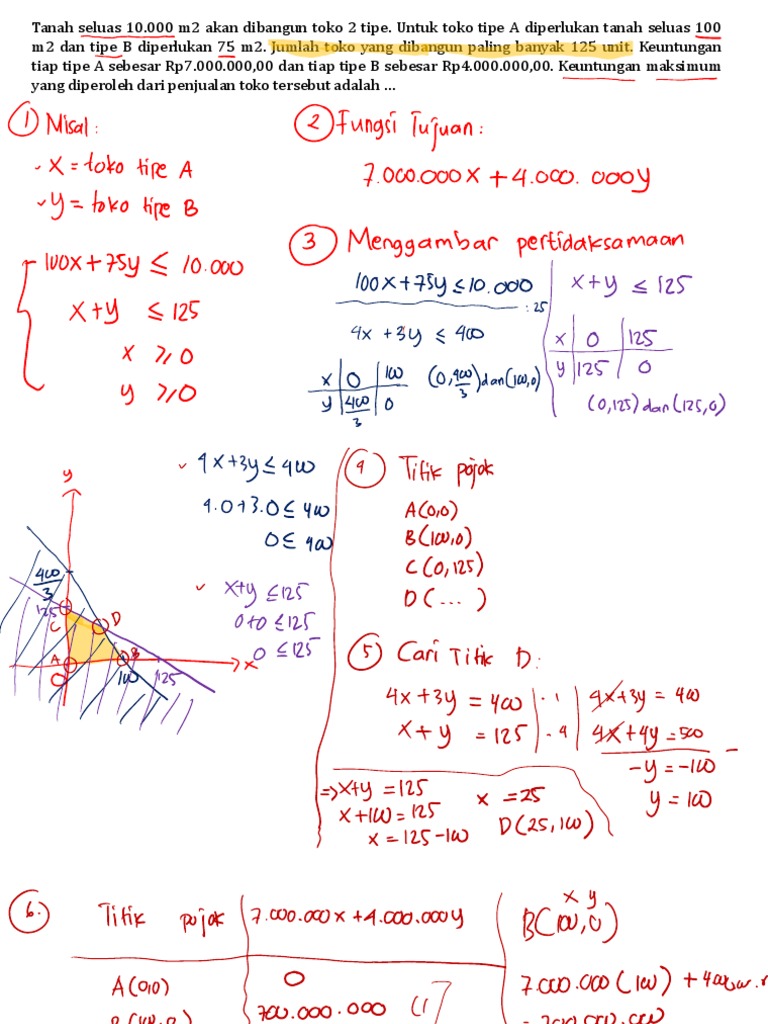 Tanah seluas 10.000 m2 akan dibangun toko 2 tipe. Untuk toko tipe A diperlukan tanah seluas 100
m2 dan tipe B diperlukan 75 m2. Jumlah toko yang dibangun paling banyak 125 unit. Keuntungan
tiap tipe A sebesar Rp7.000.000,00 dan tiap tipe B sebesar Rp4.000.000,00. Keuntungan maksimum
yang diperoleh dari penjualan toko tersebut adalah ...
① Misal:
x = toko tipe A
y = toko tipe B
100x + 75y ≤ 10.000
x + y ≤ 125
x ≥ 0
y ≥ 0
② Fungsi Tujuan:
7.000.000x + 4.000.000y
③ Menggambar pertidaksamaan
100x + 75y ≤ 10.000
: 25
4x + 3y ≤ 400
x | 0 | 100
y | 400/3 | 0
(0, 400/3) dan (100,0)
x + y ≤ 125
x | 0 | 125
y | 125 | 0
(0,125) dan (125,0)
y
400/3
125
C
D
A
B
O
100
125
x
4x + 3y ≤ 400
4.0 + 3.0 ≤ 400
0 ≤ 400
x + y ≤ 125
0 + 0 ≤ 125
0 ≤ 125
④ Titik pojok
A (0,0)
B (100,0)
C (0,125)
D (...)
⑤ Cari Titik D:
4x + 3y = 400 | . 1 | 4x + 3y = 400
x + y = 125 | . 4 | 4x + 4y = 500 −
-y = -100
y = 100
=> x + y = 125
x + 100 = 125
x = 125 - 100
x = 25
D (25, 100)
⑥. Titik pojok | 7.000.000x + 4.000.000y
A (0,0) | 0
B (100,0) | 700.000.000
x y
B (100, 0)
7.000.000 (100) +
= 700.000.000